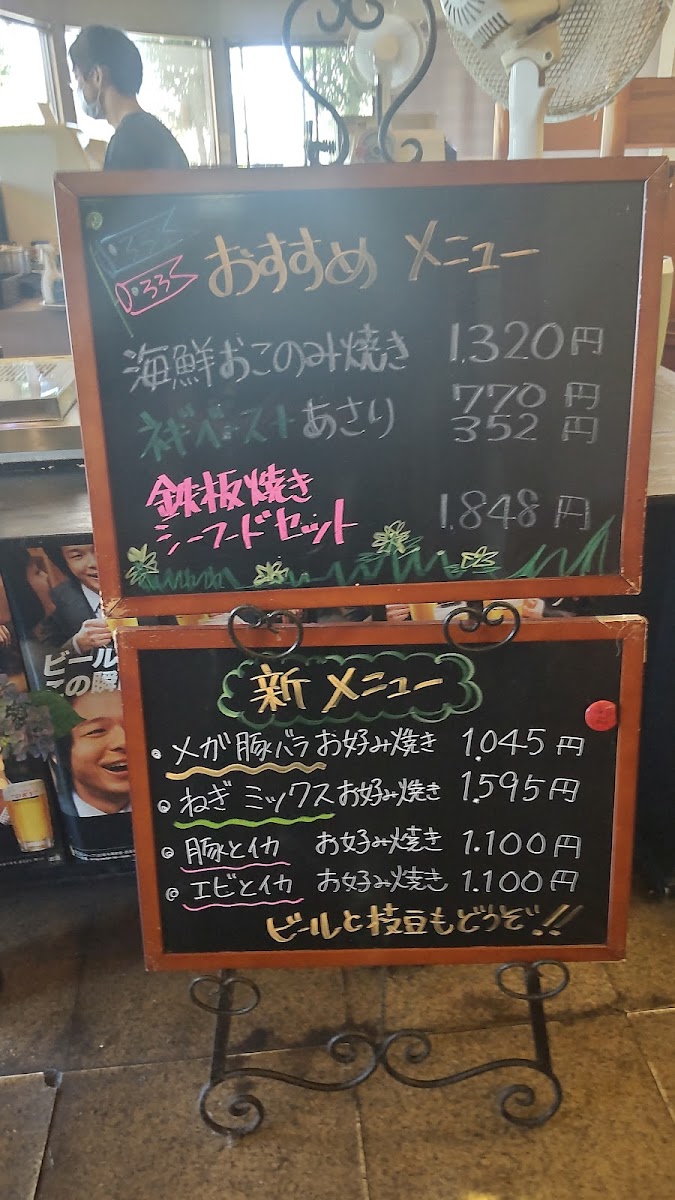 おすすめ メニュー
海鮮おこのみ焼き 1.320円
770円
ネギベースト あさり 352円
鉄板焼き
シーフードセット 1.848円
新メニュー
メガ豚バラお好み焼き 1.045円
ねぎミックスお好み焼き 1.595円
豚とイカ お好み焼き 1.100円
エビとイカ お好み焼き 1.100円
ビールと枝豆もどうぞ!!
ビール
この瞬